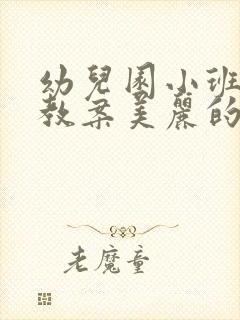 幼兒園小班
教案美麗的
老魔童